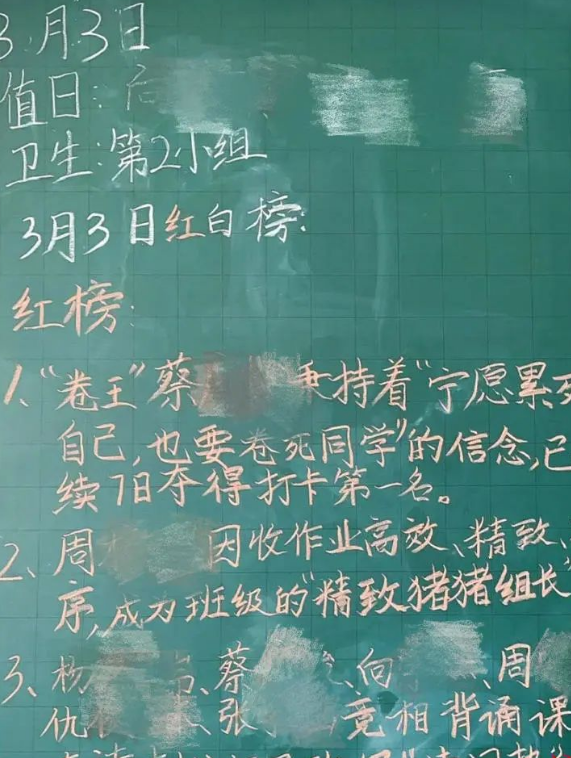 3月3日
值日:
卫生:第2小组
3月3日红白榜:
红榜:
1、"卷王"蔡 秉持着"宁愿累死
自己,也要卷死同学"的信念,已
续7日夺得打卡第一名。
2、周 因收作业高效、精致、
序,成为班级的"精致猪猪组长"
3、杨 、蔡 、向 、周
仇 、张 竞相背诵课